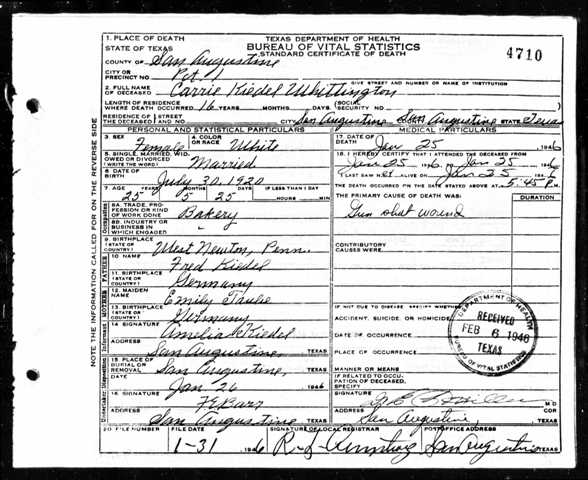 1. PLACE OF DEATH
STATE OF TEXAS
TEXAS DEPARTMENT OF HEALTH
BUREAU OF VITAL STATISTICS
STANDARD CERTIFICATE OF DEATH
4710
COUNTY OF San Augustine
CITY OR PRECINCT NO. Pct. 1
GIVE STREET AND NUMBER OR NAME OF INSTITUTION
2. FULL NAME OF DECEASED Carrie Kiedel Whittington
LENGTH OF RESIDENCE WHERE DEATH OCCURRED 16 YEARS MONTHS DAYS (SOCIAL SECURITY NO.
RESIDENCE OF THE DECEASED STREET AND NO. CITY San Augustine San Augustine STATE Texas
PERSONAL AND STATISTICAL PARTICULARS
3. SEX Female
4. COLOR OR RACE White
5. SINGLE, MARRIED, WIDOWED OR DIVORCED (WRITE THE WORD) Married
6. DATE OF BIRTH July 30, 1920
7. AGE YEARS MONTHS DAYS IF LESS THAN 1 DAY
25 5 25 HOURS MIN
8A. TRADE, PROFESSION OR KIND OF WORK DONE Bakery
8B. INDUSTRY OR BUSINESS IN WHICH ENGAGED "
9. BIRTHPLACE (STATE OR COUNTRY) West Newton, Penn.
FATHER
10 NAME Fred Kiedel
11. BIRTHPLACE (STATE OR COUNTRY) Germany
MOTHER
12. MAIDEN NAME Emily
13. BIRTHPLACE (STATE OR COUNTRY) Germany
14 SIGNATURE Amelia Kiedel
ADDRESS San Augustine, TEXAS
15. PLACE OF BURIAL OR REMOVAL San Augustine, TEXAS
DATE Jan 26 1946
16. SIGNATURE
ADDRESS San Augustine TEXAS
MEDICAL PARTICULARS
17. DATE OF DEATH Jan 25 1946
18. I HEREBY CERTIFY THAT I ATTENDED THE DECEASED FROM
Jan 25 1946 TO Jan 25 1946
I LAST SAW HER ALIVE ON Jan 25 1946
THE DEATH OCCURRED ON THE DATE STATED ABOVE AT 5:45 P.M.
THE PRIMARY CAUSE OF DEATH WAS: DURATION
Gun shot wound
CONTRIBUTORY CAUSES WERE:
IF NOT DUE TO DISEASE, SPECIFY WHETHER
ACCIDENT, SUICIDE, OR HOMICIDE
DATE OF OCCURRENCE
PLACE OF OCCURRENCE
MANNER OR MEANS
IF RELATED TO OCCUPATION OF DECEASED, SPECIFY
SIGNATURE M.D.
ADDRESS San Augustine, COR TEXAS
DEPARTMENT OF HEALTH
RECEIVED
FEB 6 1946
TEXAS
BUREAU OF VITAL STATISTICS
20 FILE NUMBER
FILE DATE 1-31 1946
SIGNATURE OF LOCAL REGISTRAR
POST OFFICE ADDRESS San Augustine TEXAS
NOTE THE INFORMATION CALLED FOR ON THE REVERSE SIDE